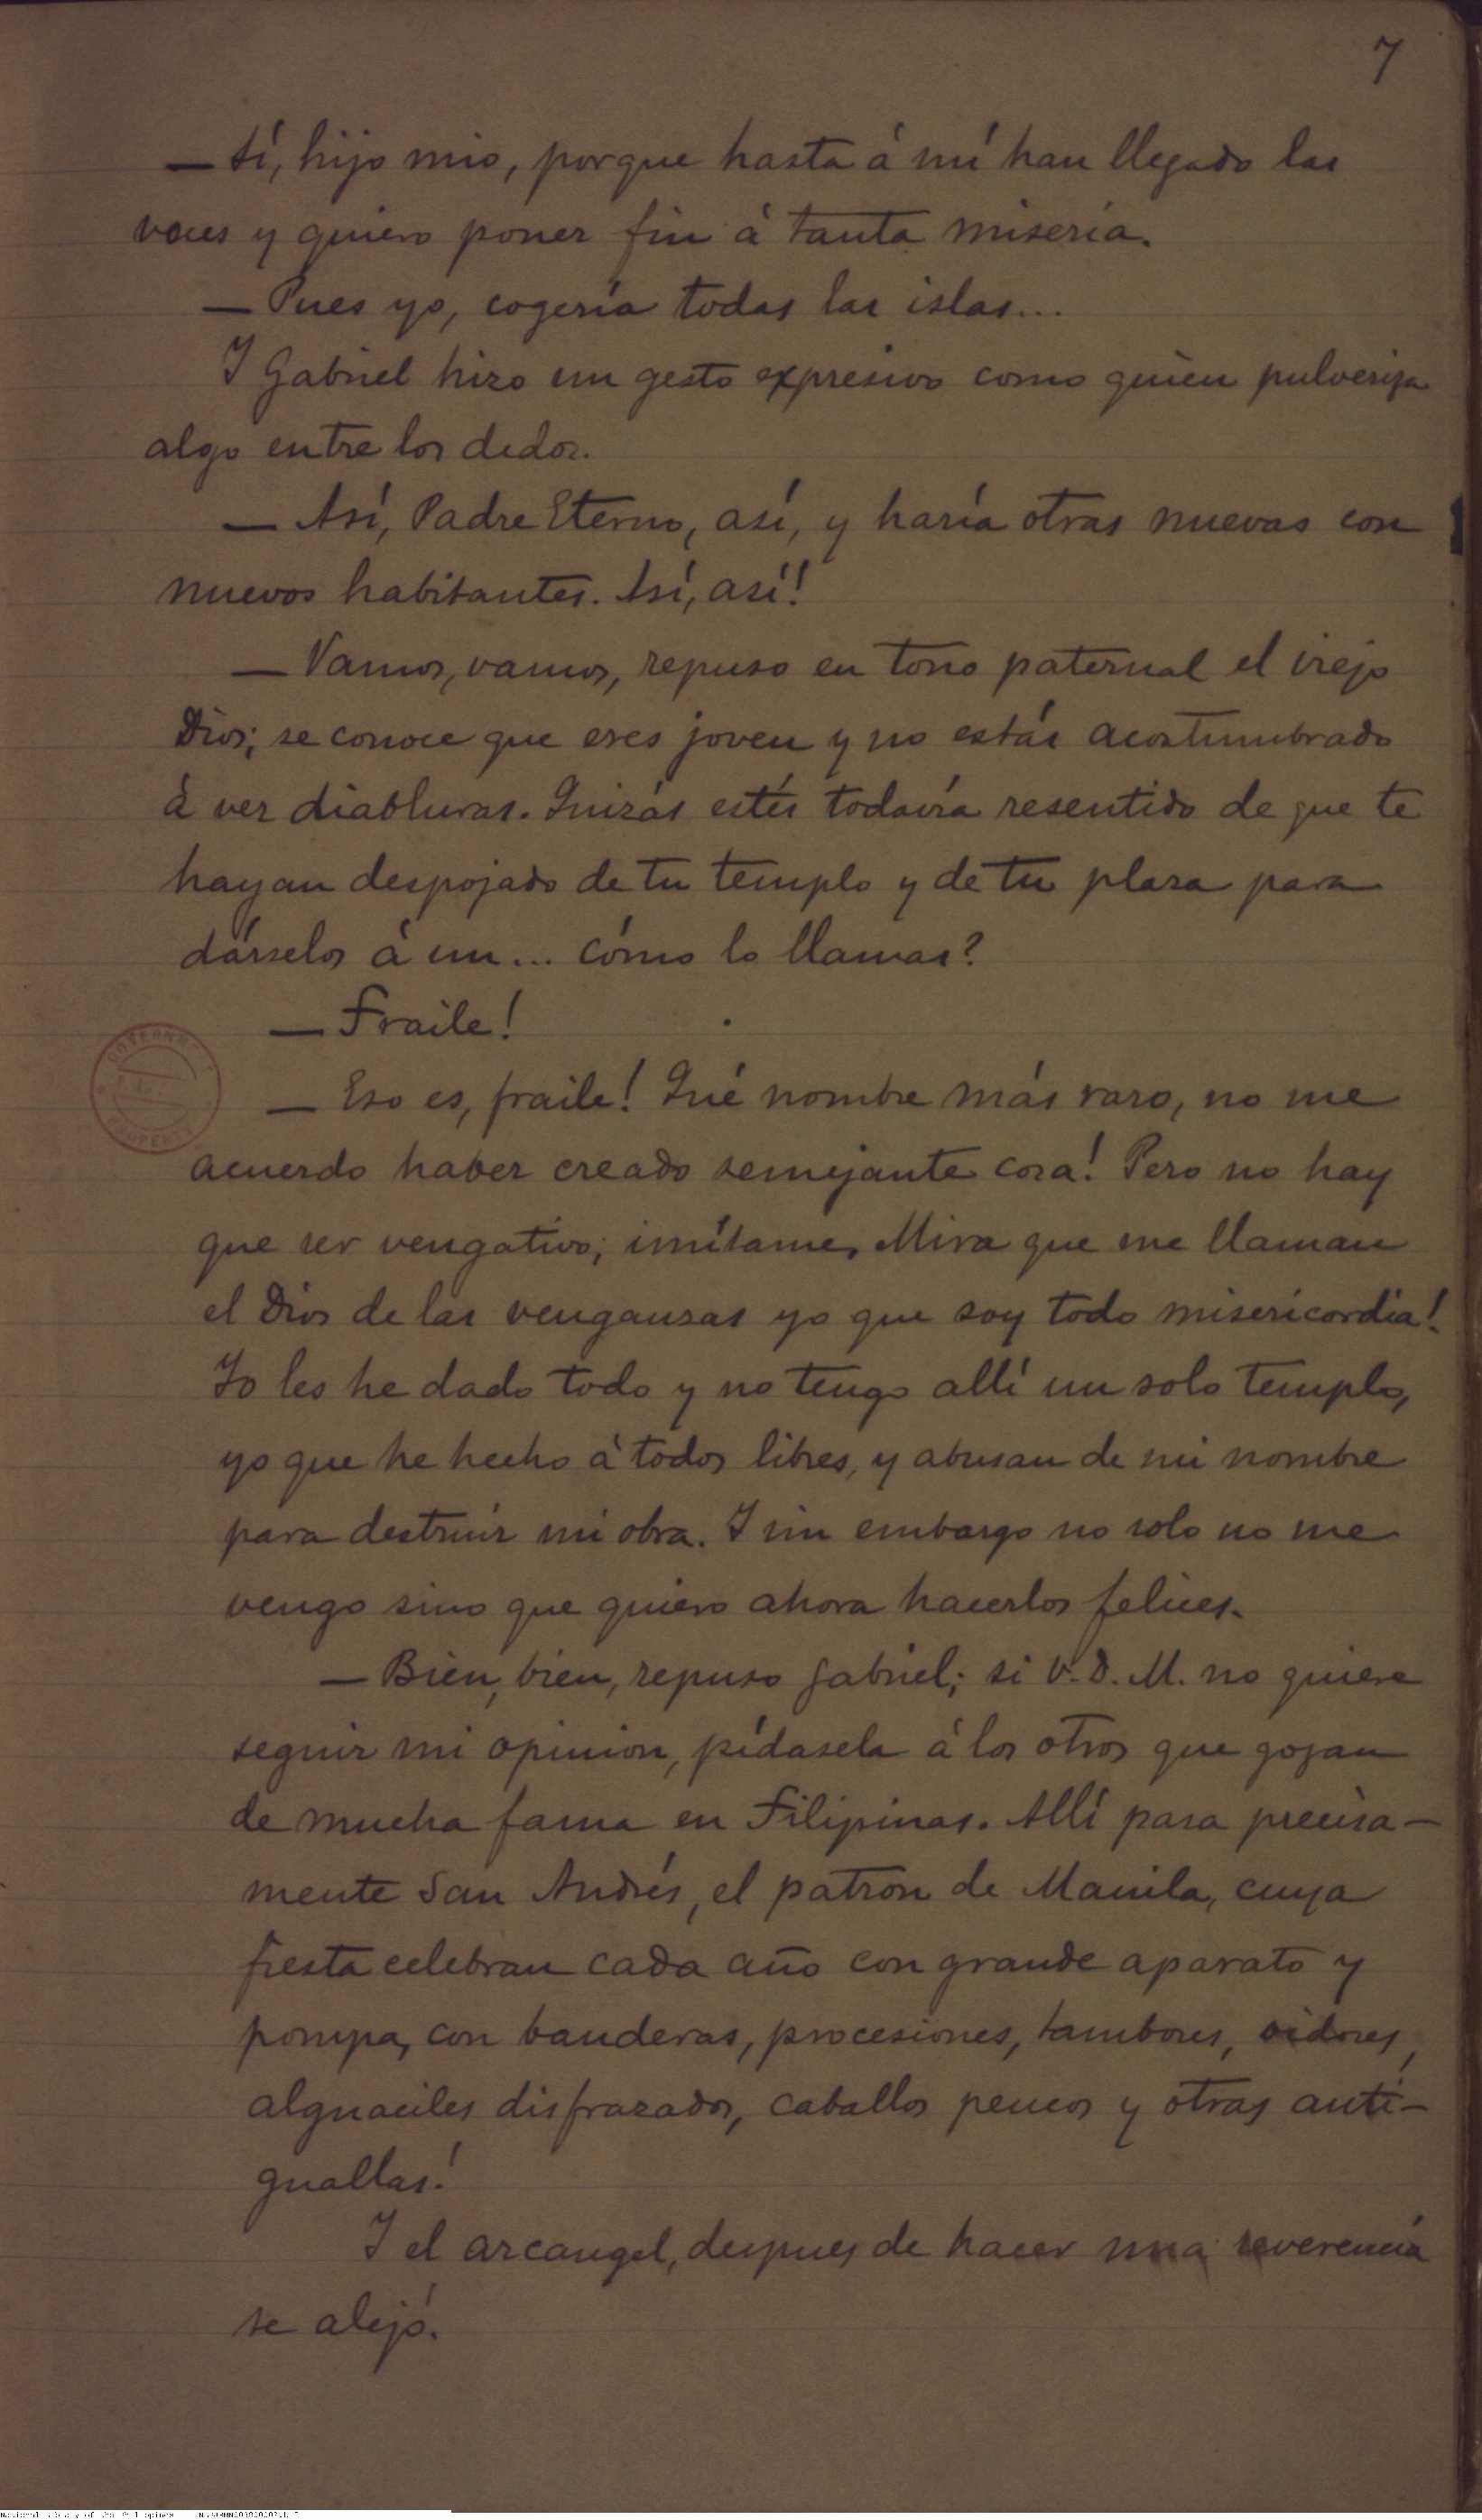 7
— Sí, hijo mio, porque hasta á mí han llegado las
voces y quiero poner fin á tanta miseria.
— Pues yo, cogería todas las islas...
Y Gabriel hizo un gesto expresivo como quien pulveriza
algo entre los dedos.
— Así, Padre Eterno, así, y haría otras nuevas con
nuevos habitantes. Así, así!
— Vamos, vamos, repuso en tono paternal el viejo
Dios; se conoce que eres joven y no estás acostumbrado
á ver diabluras. Quizás estés todavía resentido de que te
hayan despojado de tu templo y de tu plaza para
dárselos á un... cómo lo llamas?
— Fraile!
— Eso es, fraile! Qué nombre más raro, no me
acuerdo haber creado semejante cosa! Pero no hay
que ser vengativo; imítame, Mira que me llaman
el Dios de las venganzas yo que soy todo misericordia!
Yo les he dado todo y no tengo allí un solo templo,
yo que he hecho á todos libres, y abusan de mi nombre
para destruir mi obra. Y sin embargo no solo no me
vengo sino que quiero ahora hacerlos felices.
— Bien, bien, repuso Gabriel; si V. D. M. no quiere
seguir mi opinion, pídasela á los otros que gozan
de mucha fama en Filipinas. Allí pasa precisa-
mente San Andrés, el patron de Manila, cuya
fiesta celebran cada año con grande aparato y
pompa, con banderas, procesiones, tambores, oidores,
alguaciles disfrazados, caballos pencos y otras anti-
guallas!
Y el arcangel, despues de hacer una reverencia
se alejó.
GOVERN
PROPERTY
National Library of the Philippines